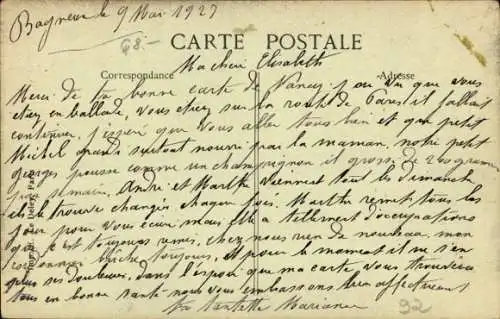 Bagneux le 9 Mai 1927
68.-
CARTE POSTALE
Correspondance
Adresse
Ma chère Elisabeth
Merci de ta bonne carte de Nancy j'ai vu que vous
étiez en ballade, vous étiez sur la route de Paris il fallait
continuer, j'espère que vous allez tous bien et que petit
Michel grandi surtout nourri par la maman, notre petit
georges pousse comme un champignon il grossi de grammes
par semaine, André et Marthe viennent tout les dimanche
ils le trouve changés chaque fois. Marthe remet tous les
jour pour vous écrire mais elle a tellement d'occupations
que c'est toujours remis, chez nous rien de nouveau, mon
toujours, et pour le moment il ne s'en
plus ses douleurs, dans l'espoir que ma carte vous trouvera
tous en bonne santé nous vous embrassons bien affectueux
ta tantette Marianne
92